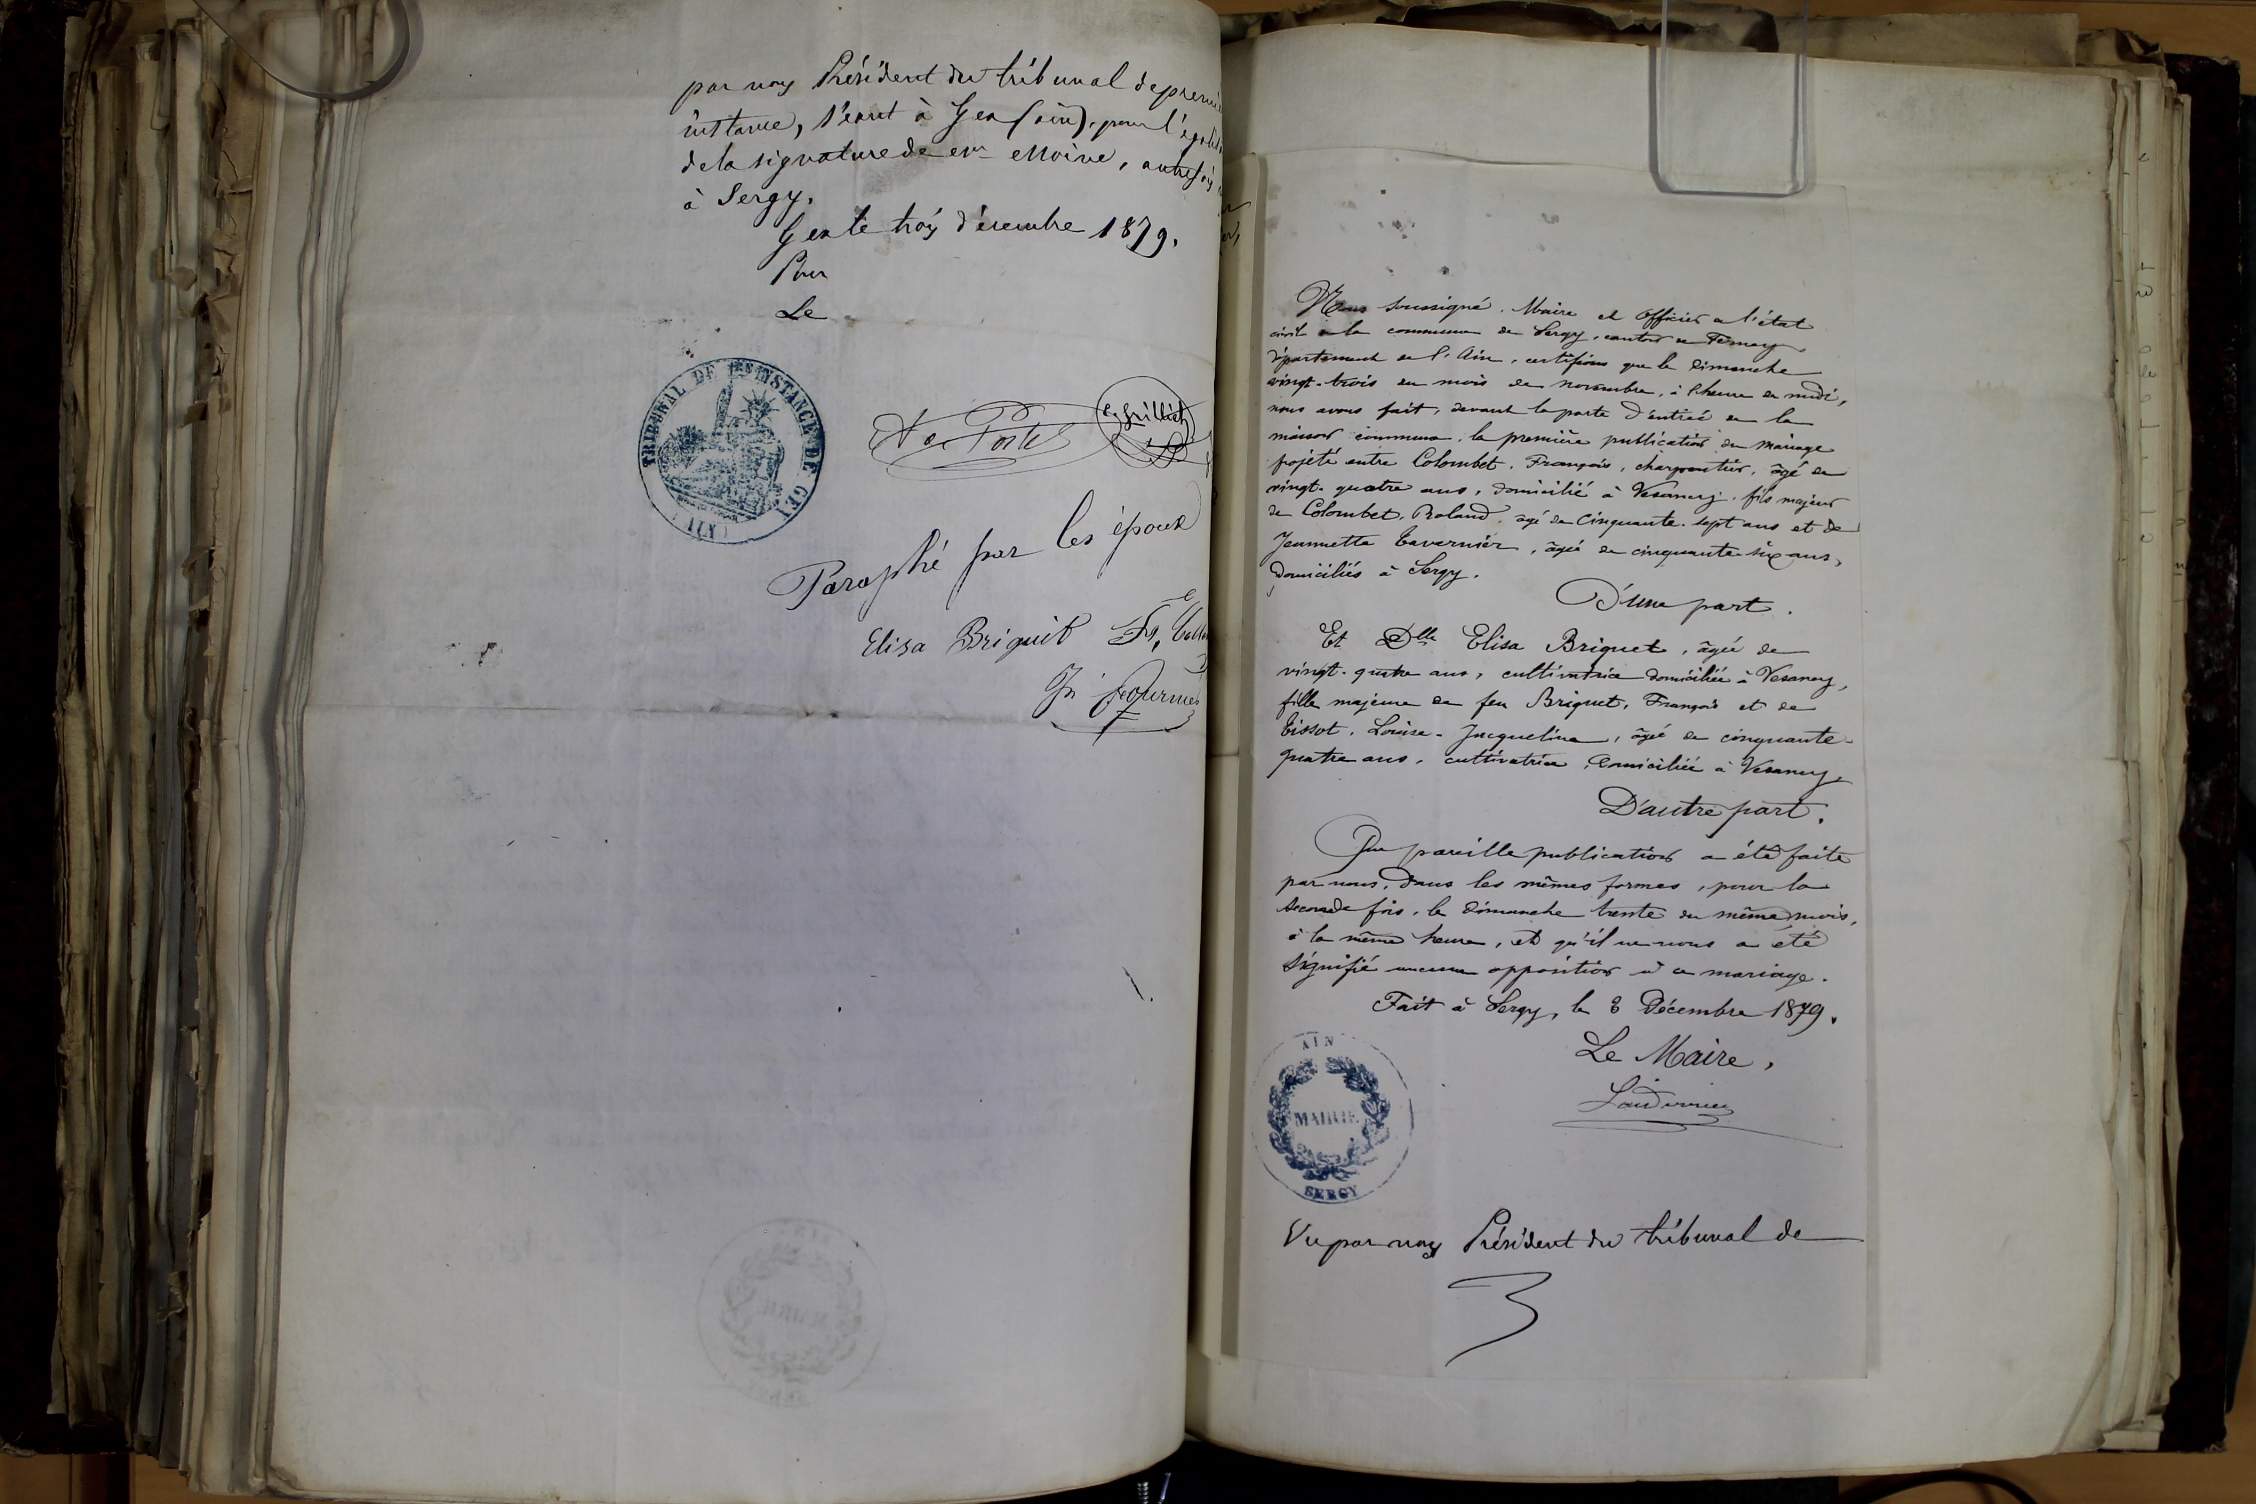 par nous Président du tribunal de premiè
instance, séant à Gex (ain), pour légalis
de la signature de Mr Moine, autrefois
à Sergy.
Gex le trois décembre 1879.
Pour
Le
TRIBUNAL DE 1ERE INSTANCE DE GEX
(AIN)
Paraphé par les époux
Elisa Briguet
Jh Fournier
Nous soussigné. Maire et Officier de l'état
civil de la commune de Sergy, canton de Ferney,
département de l'Ain, certifions que le Dimanche
vingt-trois du mois de novembre, à l'heure de midi,
nous avons fait, devant la porte d'entrée de la
maison commune, la première publication du mariage
projété entre Colombet, François, charpentier, âgé de
vingt-quatre ans, domicilié à Vesancy, fils majeur
de Colombet, Roland, âgé de Cinquante-sept ans et de
Jeannette Tavernier, âgée de cinquante-six ans,
domiciliés à Sergy.
D'une part.
Et Dlle Elisa Briguet, âgée de
vingt-quatre ans, cultivatrice domiciliée à Vesancy,
fille majeure de feu Briguet, François et de
Tissot, Louise-Jacqueline, âgée de cinquante-
quatre ans, cultivatrice, domiciliée à Vesancy.
D'autre part.
Que pareille publication a été faite
par nous, dans les mêmes formes, pour la
seconde fois, le dimanche trente du même mois,
à la même heure, et qu'il ne nous a été
signifié aucune opposition à ce mariage.
Fait à Sergy, le 3 Décembre 1879.
Le Maire,
AIN
MAIRIE
SERGY
Vu par nous Président du tribunal de